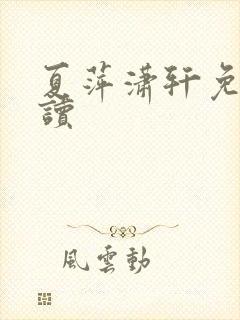 夏萍潇轩免
讀
風雲動